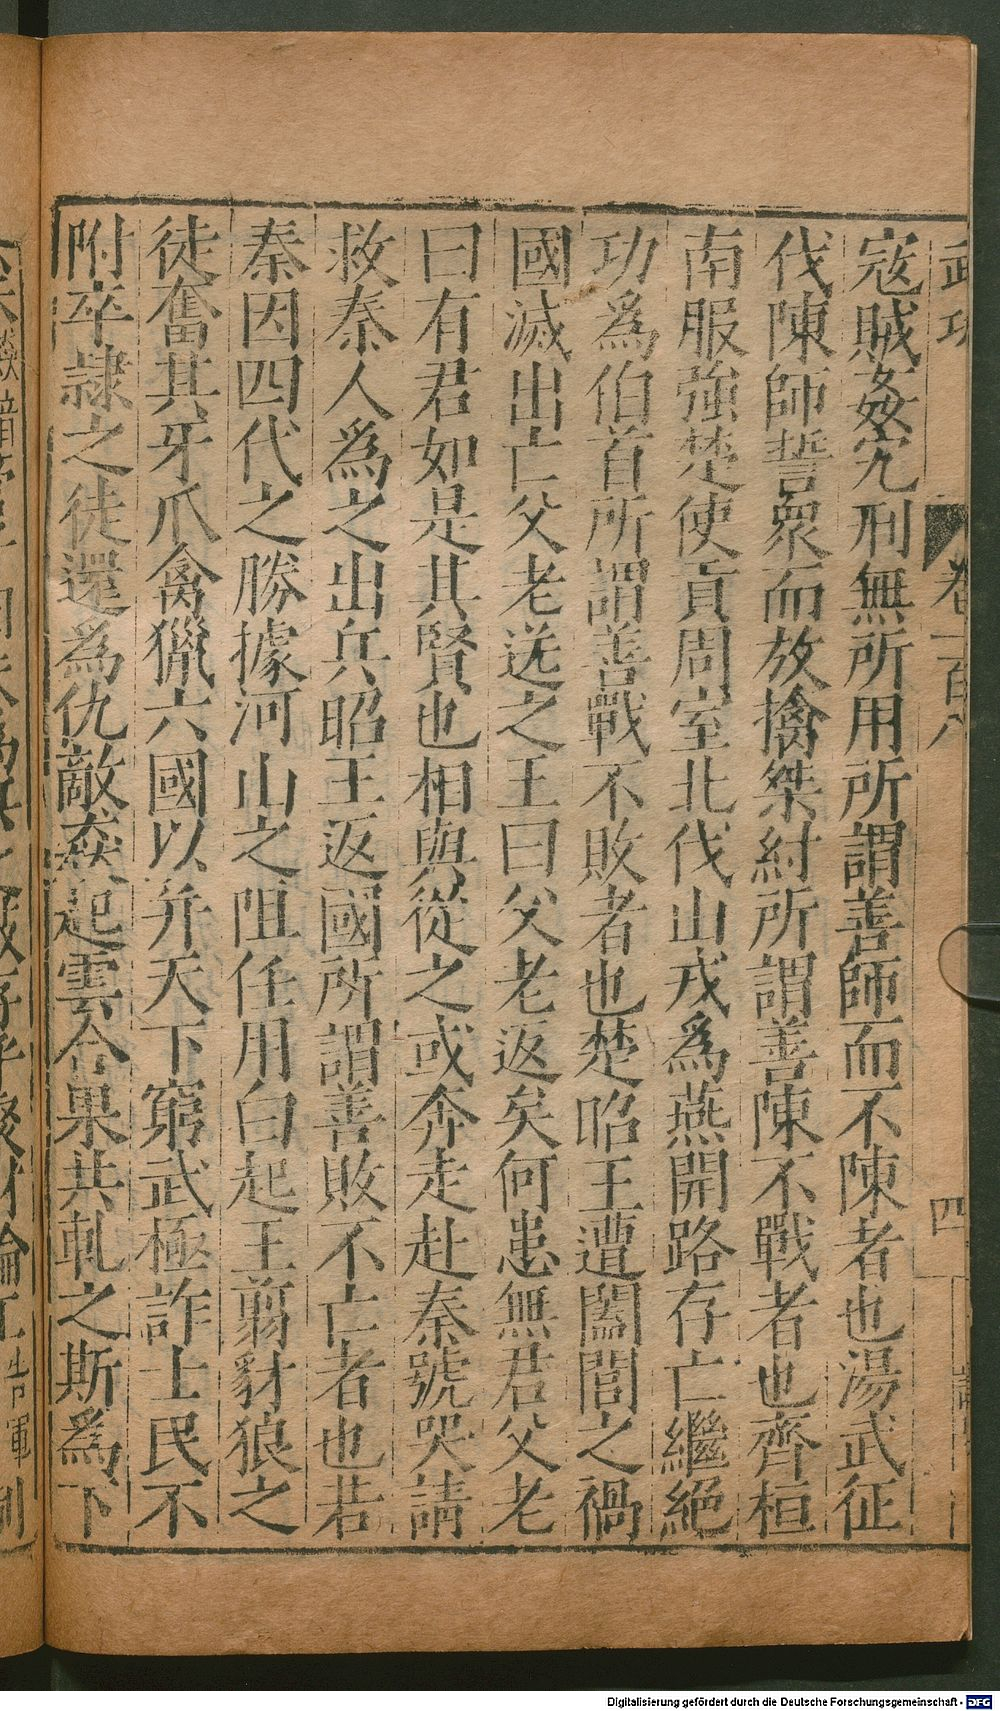 武功
卷一百八
四
寇賊姦宄刑無所用所謂善師而不陳者也湯武征
伐陳師誓衆而放擒桀紂所謂善陳不戰者也齊桓
南服強楚使貢周室北伐山戎爲燕開路存亡繼絕
功爲伯首所謂善戰不敗者也楚昭王遭闔閭之禍
國滅出亡父老送之王曰父老返矣何患無君父老
曰有君如是其賢也相與從之或奔走赴秦號哭請
救秦人爲之出兵昭王返國所謂善敗不亡者也若
秦因四代之勝據河山之阻任用白起王翦豺狼之
徒奮其牙爪禽獵六國以并天下窮武極詐士民不
附卒隷之徒還爲仇敵猋起雲合果共軋之斯爲下
Digitalisierung gefördert durch die Deutsche Forschungsgemeinschaft - DFG